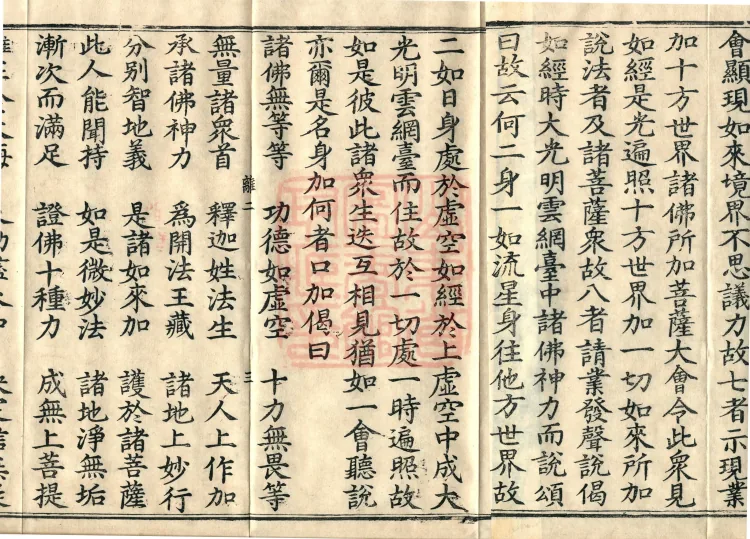 會顯現如來境界不思議力故七者示現業
加十方世界諸佛所加菩薩大會今此衆見
如經是光遍照十方世界加一切如來所加
說法者及諸菩薩衆故八者請業發聲說偈
如經時大光明雲網臺中諸佛神力而說頌
曰故云何二身一如流星身往他方世界故
二如日身處於虛空如經於上虛空中成大
光明雲網臺而住故於一切處一時遍照故
如是彼此諸衆生迭互相見猶如一會聽說
亦爾是名身加何者口加偈曰
諸佛無等等 功德如虛空 十力無畏等
離二 三
無量諸衆首 釋迦姓法生 天人上作加
承諸佛神力 爲開法王藏 諸地上妙行
分別智地義 是諸如來加 護於諸菩薩
此人能聞持 如是微妙法 諸地淨無垢
漸次而滿足 證佛十種力 成無上菩提